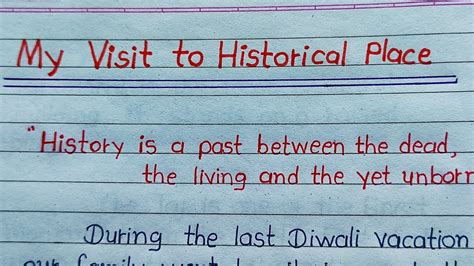 My Visit to Historical Place
"History is a past between the dead,
the living and the yet unborn
During the last Diwali vacation
our family went